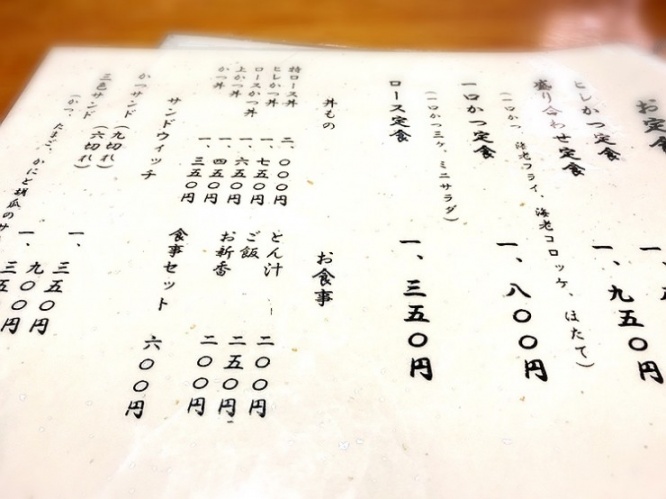 お定食
ヒレかつ定食
盛り合わせ定食 一、九五〇円
(一口かつ、海老フライ、海老コロッケ、ほたて)
一口かつ定食 一、八〇〇円
(一口かつ三ケ、ミニサラダ)
ロース定食 一、三五〇円
丼もの
特ロース丼 二、〇〇〇円
ヒレかつ丼 一、七五〇円
ロースかつ丼 一、六五〇円
上かつ丼 一、四五〇円
かつ丼 一、三五〇円
お食事
とん汁 二〇〇円
ご飯 二五〇円
お新香 二〇〇円
食事セット 六〇〇円
サンドウィッチ
かつサンド(九切れ) 一、三五〇円
三色サンド(六切れ) 一、九〇〇円
(かつ、たまご、かにと胡瓜のサ
三五〇円